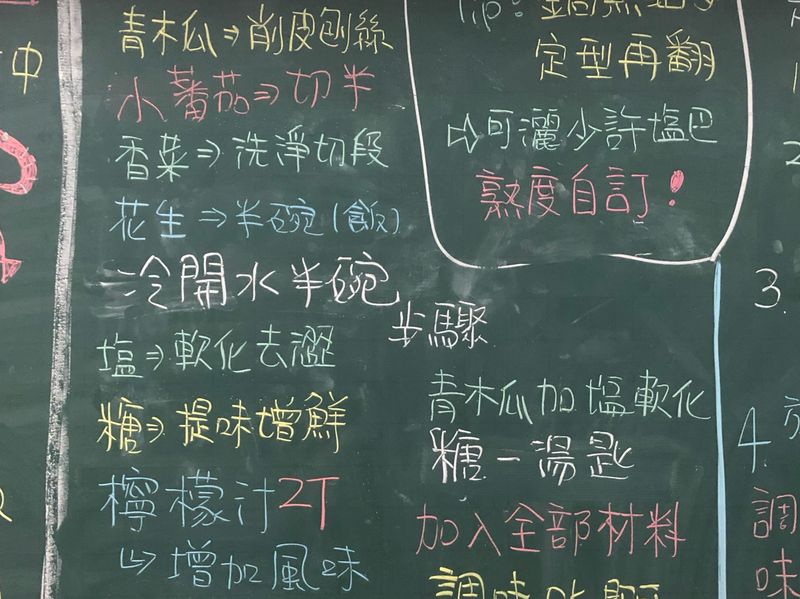 青木瓜⇒削皮刨絲
小蕃茄⇒切半
香菜⇒洗淨切段
花生⇒半碗(飯)
冷開水半碗
塩⇒軟化去澀
糖⇒提味增鮮
檸檬汁2T
↳增加風味
定型再翻
⇨可灑少許塩巴
熟度自訂!
步驟
青木瓜加塩軟化
糖一湯匙
加入全部材料
中
3.
4.
調
味